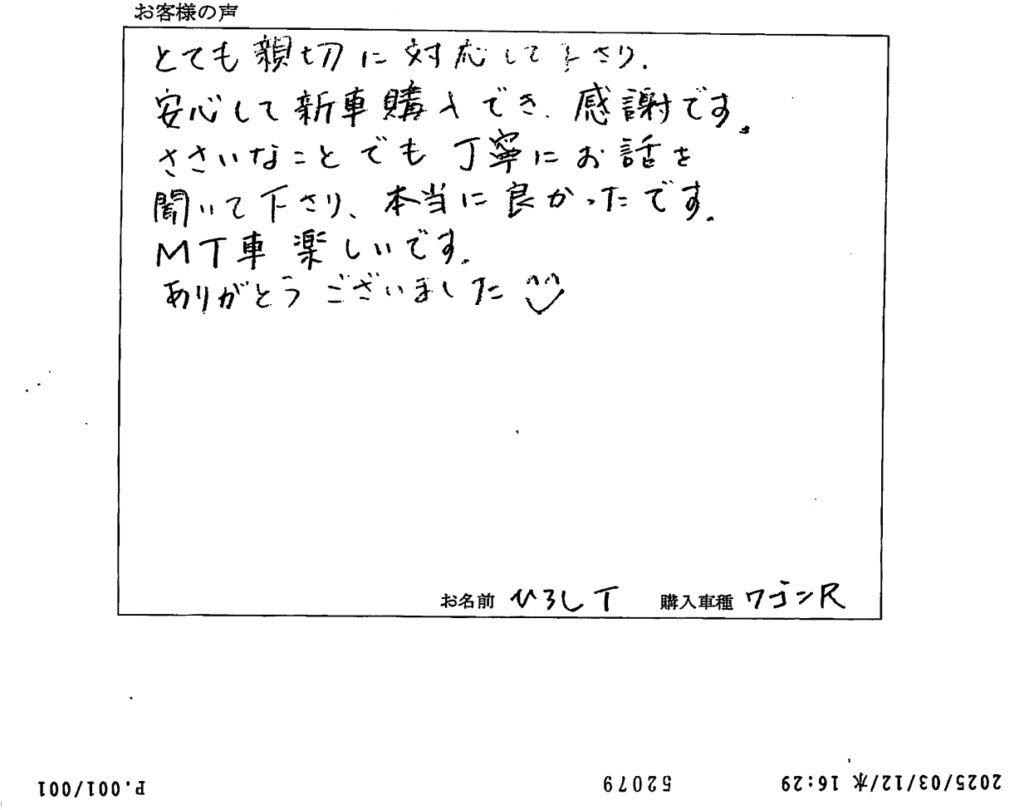 お客様の声
とても親切に対応して下さり、
安心して新車購入でき、感謝です。
ささいなことでも丁寧にお話を
聞いて下さり、本当に良かったです。
MT車楽しいです。
ありがとうございました
お名前 ひろしT 購入車種 ワゴンR
2025/03/12/水 16:29 52079 P.001/001